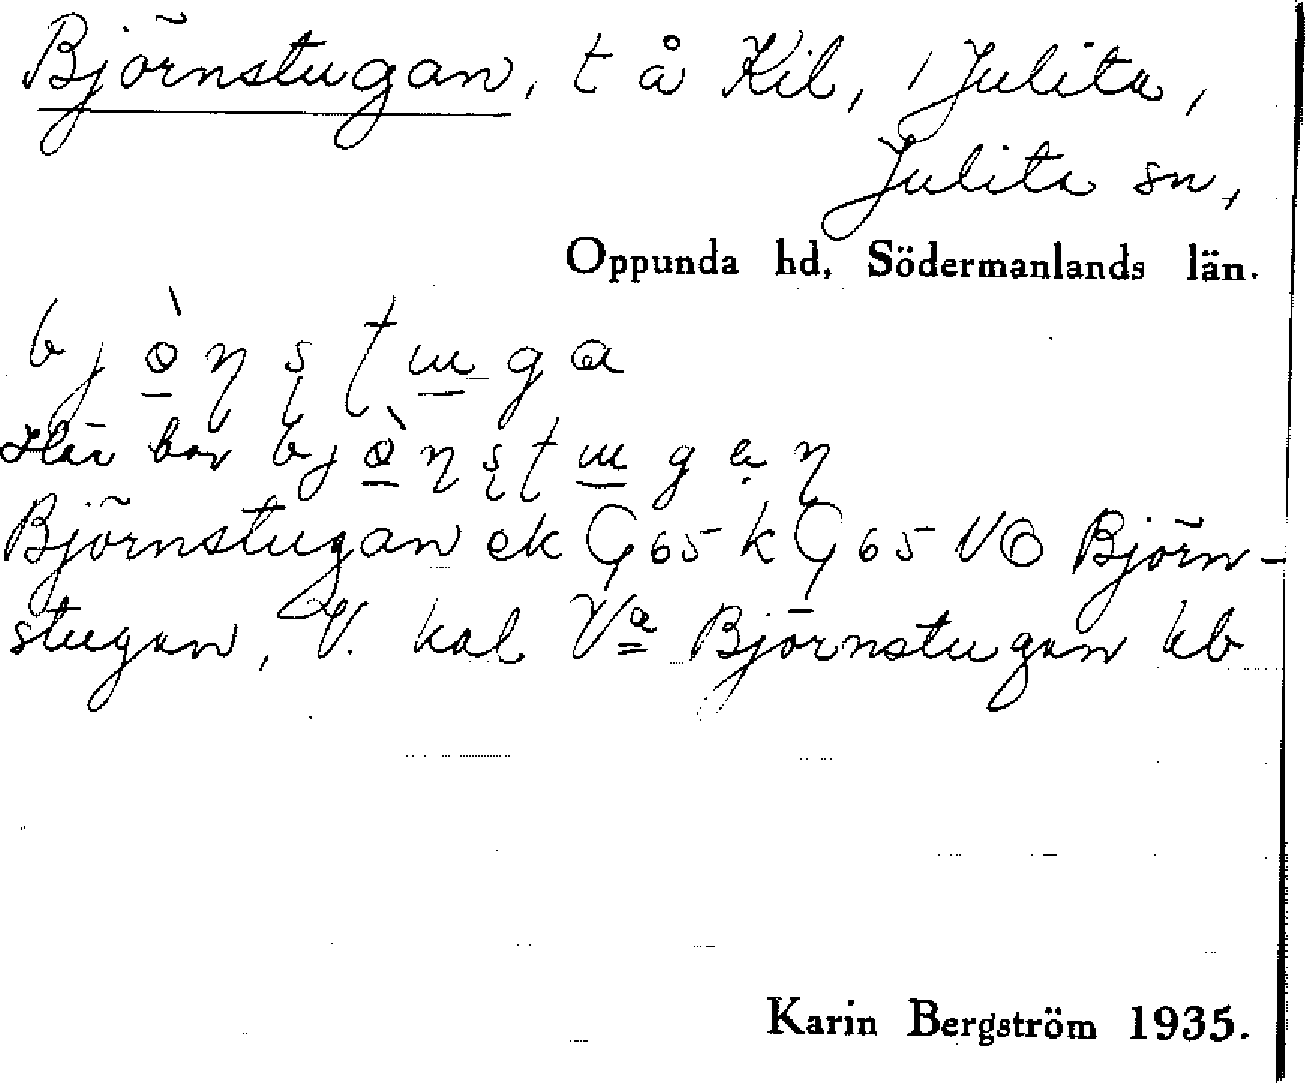 Björnstugan, t å Kil, 1 Julita,
Julita sn,
Oppunda hd, Södermanlands län.
Här bor
Björnstugan ek G 65 k G 65 Björn-
stugan, V. kal Va Björnstugan kb
Karin Bergström 1935.